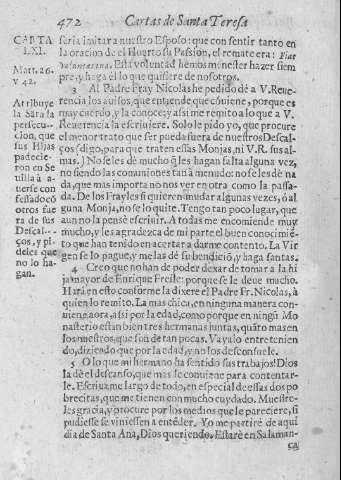 472 Cartas de Santa Teresa
CARTA
LXI.
Matt. 26.
v. 42.
Atribuye
la Santa la
persecu-
cion, que
sus Hijas
padecie-
ron en Se
uilla à a-
uerse con
fessado cõ
otros fue
ra de sus
Descal-
ços, y pi-
deles que
no lo ha-
gan.
seria imitar a nuestro Esposo: que con sentir tanto en
la oracion de el Huerto su Passion, el remate era: Fiat
voluntas tua. Esta voluntad hemos menester hazer siem
pre, y haga èl lo que quisiere de nosotros.
3 Al Padre Fray Nicolàs he pedido dè a V. Reue-
rencia los auisos, que entiende que cõuiene, porque es
muy cuerdo, y la conoce; y assi me remito a lo que a V.
Reuerencia la escriuiere. Solo le pido yo, que procure
el menor trato que ser pueda fuera de nuestros Descal
ços (digo, para que traten essas Monjas, ni V. R. sus al-
mas.) No se les dè mucho q̃ les hagan falta alguna vez,
no siendo las comuniones tan à menudo: no se les dè na
da, que mas importa no nos ver en otra como la passa-
da. De los Frayles si quieren mudar algunas vezes, ó al
guna Monja, no se lo quite. Tengo tan poco lugar, que
aun no la pensè escriuir. A todas me encomiende muy
mucho, y les agradezca de mi parte el buen conocimiẽ
to que han tenido en acertar a darme contento. La Vir
gen se lo pague, y me las dè su bendicion, y haga santas.
4 Creo que no han de poder dexar de tomar a la hi
ja mayor de Enrique Freile: porque se le deue mucho.
Harà en esto conforme la dixere el Padre Fr. Nicolàs, à
quien lo remito. La mas chica, en ninguna manera con
uiene aora, assi por la edad, como porque en ningũ Mo
nasterio estàn bien tres hermanas juntas, quãto mas en
los nuestros, que son de tan pocas. Vayalo entretenien
do, diziendo que por la edad, y no los desconsuele.
O lo que mi hermano ha sentido sus trabajos! Dios
la dè el descanso, que mas le conuiene para contentar-
le. Escriuame largo de todo, en especial de essas dos po
brecitas, que me tienen con mucho cuydado. Muestre-
les gracia, y procure por los medios que le pareciere, si
pudiesse se viniessen a entẽder. Yo me partirè de aqui
dia de Santa Ana, Dios queriendo. Estarè en Salaman-
ca